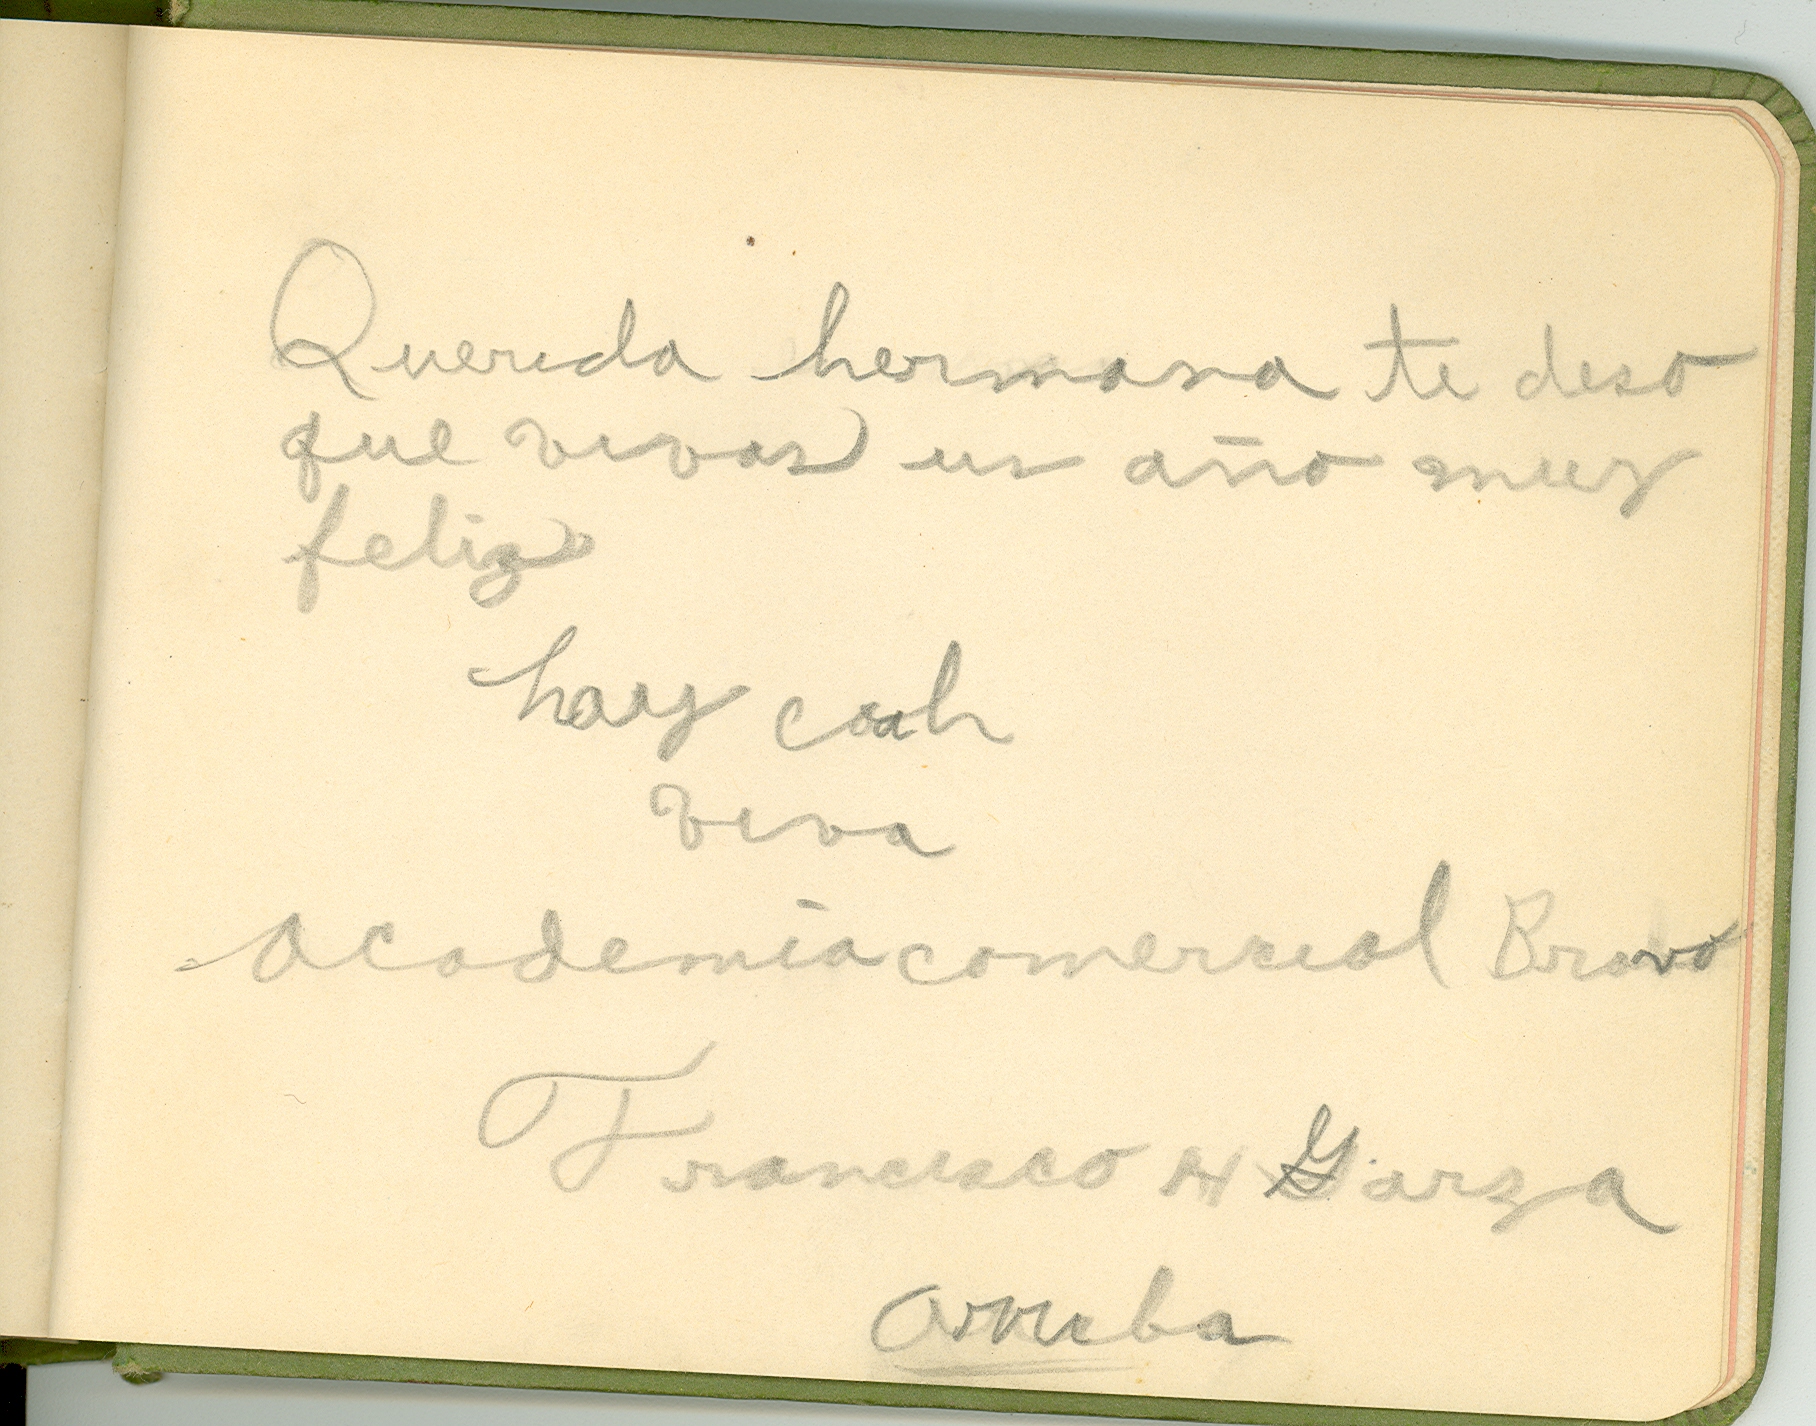 Querida hermana te deso
que vivas un año muy
feliz
hay
viva
academia comercial Bravo
Francisco H Garza
arruba